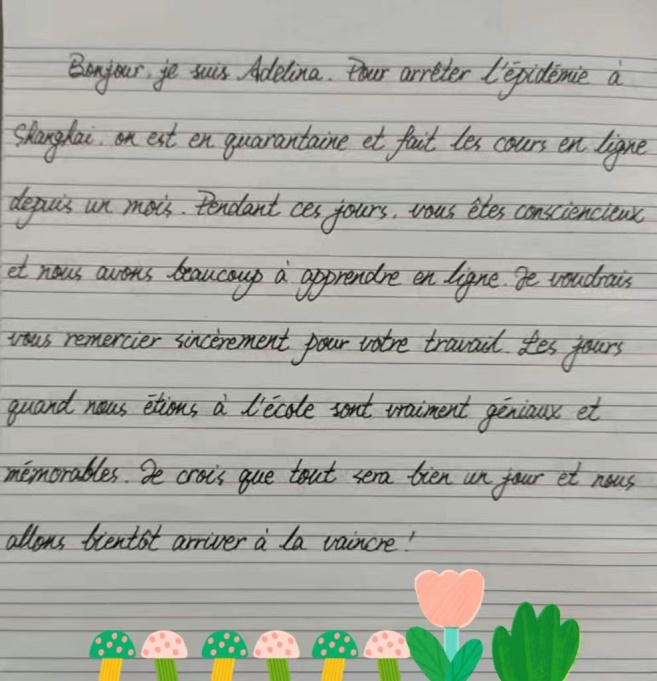 Bonjour, je suis Adelina. Pour arrêter l'épidémie à
Shanghai, on est en quarantaine et fait les cours en ligne
depuis un mois. Pendant ces jours, vous êtes consciencieux
et nous avons beaucoup à apprendre en ligne. Je voudrais
vous remercier sincèrement pour votre travail. Les jours
quand nous étions à l'école sont vraiment géniaux et
mémorables. Je crois que tout sera bien un jour et nous
allons bientôt arriver à la vaincre !